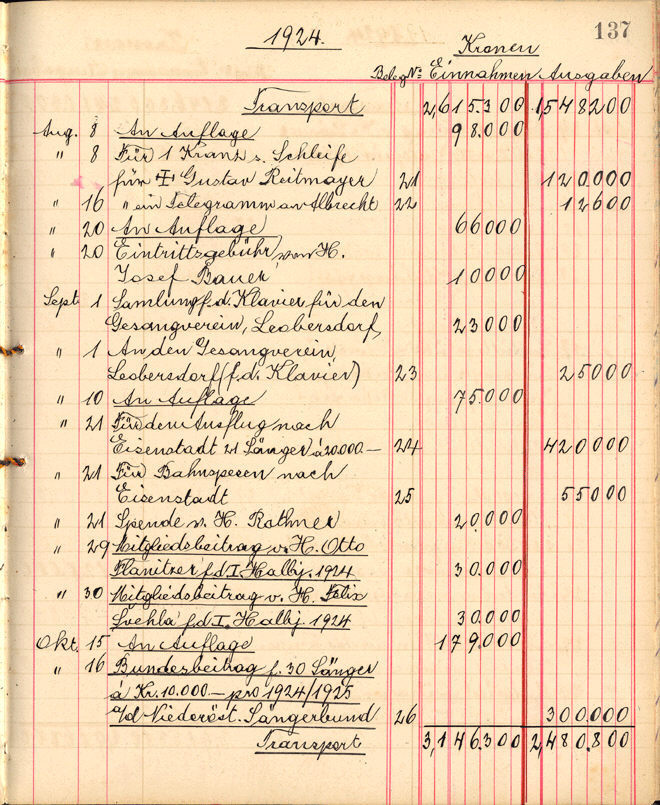 137
1924.
Kronen
Beleg Nº Einnahmen Ausgaben
Transport 2,615.300 1,548200
Aug. 8 An Auflage 98.000
" 8 Für 1 Kranz s. Schleife
für Gustav Reitmayer 21 120.000
" 16 " ein Telegramm an Albrecht 22 12600
" 20 An Auflage 66000
" 20 Eintrittsgebühr von H.
Josef Bauer 10000
Sept. 1 Samlung f. d. Klavier für den
Gesangverein, Leobersdorf, 23000
" 1 An den Gesangverein,
Leobersdorf (f. d. Klavier) 23 25000
" 10 An Auflage 75.000
" 21 Für den Ausflug nach
Eisenstadt 21 Sänger á 20.000— 24 420000
" 21 Für Bahnspesen nach
Eisenstadt 25 55000
" 21 Spende v. H. Rothmer 20.000
" 29 Mitgliedsbeitrag v. H. Otto
Planitzer f. d. I Halbj. 1924 30.000
" 30 Mitgliedsbeitrag v. H. Felix
Svehla f. d. I. Halbj. 1924 30.000
Okt. 15 An Auflage 179.000
" 16 Bundesbeitrag f. 30 Sänger
á Kr. 10.000— pro 1924/1925
a/d Niederöst. Sängerbund 26 300.000
Transport 3,146.300 2,480.800